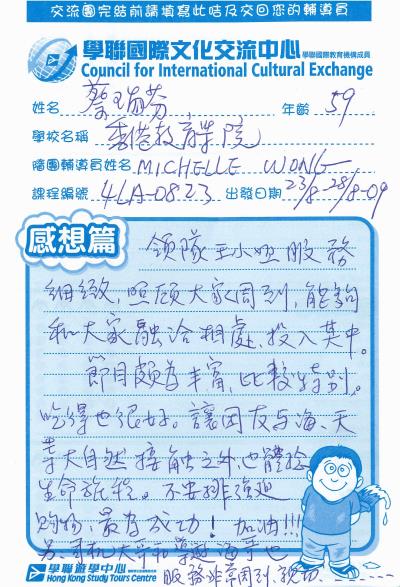 交流團完結前請填寫此咭及交回您的輔導員
學聯國際文化交流中心 學聯國際教育機構成員
Council for International Cultural Exchange
姓名 蔡瑞芬 年齡 59
學校名稱 香港教育學院
隨團輔導員姓名 MICHELLE WONG
課程編號 4LA-0823 出發日期 23/8-28/8-09
感想篇
領隊王小姐服務
細緻，照顧大家周到，能夠
和大家融洽相處，投入其中。
節目頗為丰富，比較特別。
吃得也很好。讓团友与海、天
等大自然接触之外，也體验
生命旅程。不安排強迫
购物，最為成功！加油!!!
另，司机大哥和導遊海哥也
服務非常周到
學聯遊學中心
Hong Kong Study Tours Centre